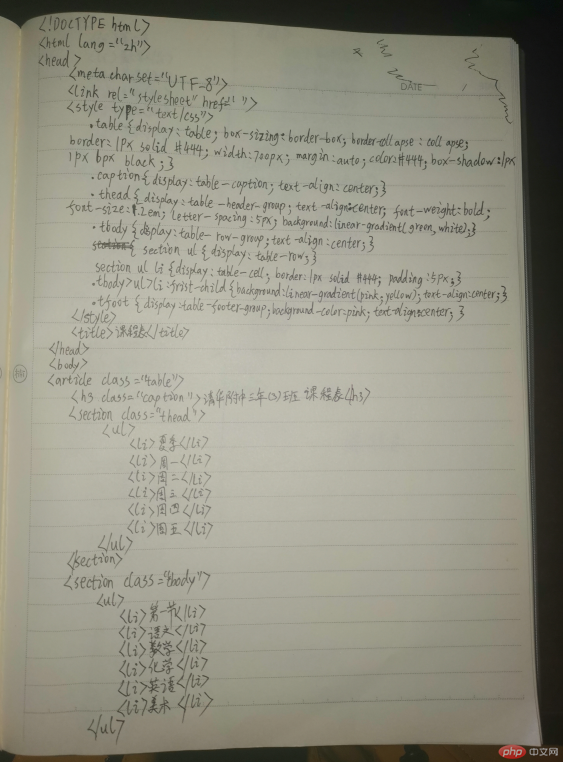 <!DOCTYPE html>
<html lang="zh">
<head>
<meta charset="UTF-8">
<link rel="stylesheet" href=" ">
<style type="text/css">
.table{display: table; box-sizing: border-box; border-collapse: collapse;
border: 1px solid #444; width: 700px; margin: auto; color: #444; box-shadow: 1px
1px 6px black;}
.caption{display: table-caption; text-align: center;}
.thead{display: table-header-group; text-align: center; font-weight: bold;
font-size: 1.2em; letter-spacing: 5px; background: linear-gradient(green, white);}
.tbody{display: table-row-group; text-align: center;}
section ul{display: table-row;}
section ul li{display: table-cell; border: 1px solid #444; padding: 5px;}
.tbody>ul>li:frist-child{background: linear-gradient(pink, yellow); text-align: center;}
.tfoot{display: table-footer-group; background-color: pink; text-align: center;}
</style>
<title>课程表</title>
</head>
<body>
<article class="table">
<h3 class="caption">清华附中三年(3)班 课程表</h3>
<section class="thead">
<ul>
<li>夏季</li>
<li>周一</li>
<li>周二</li>
<li>周三</li>
<li>周四</li>
<li>周五</li>
</ul>
<section>
<section class="tbody">
<ul>
<li>第一节</li>
<li>语文</li>
<li>数学</li>
<li>化学</li>
<li>英语</li>
<li>美术</li>
</ul>
DATE / /
php 中文网